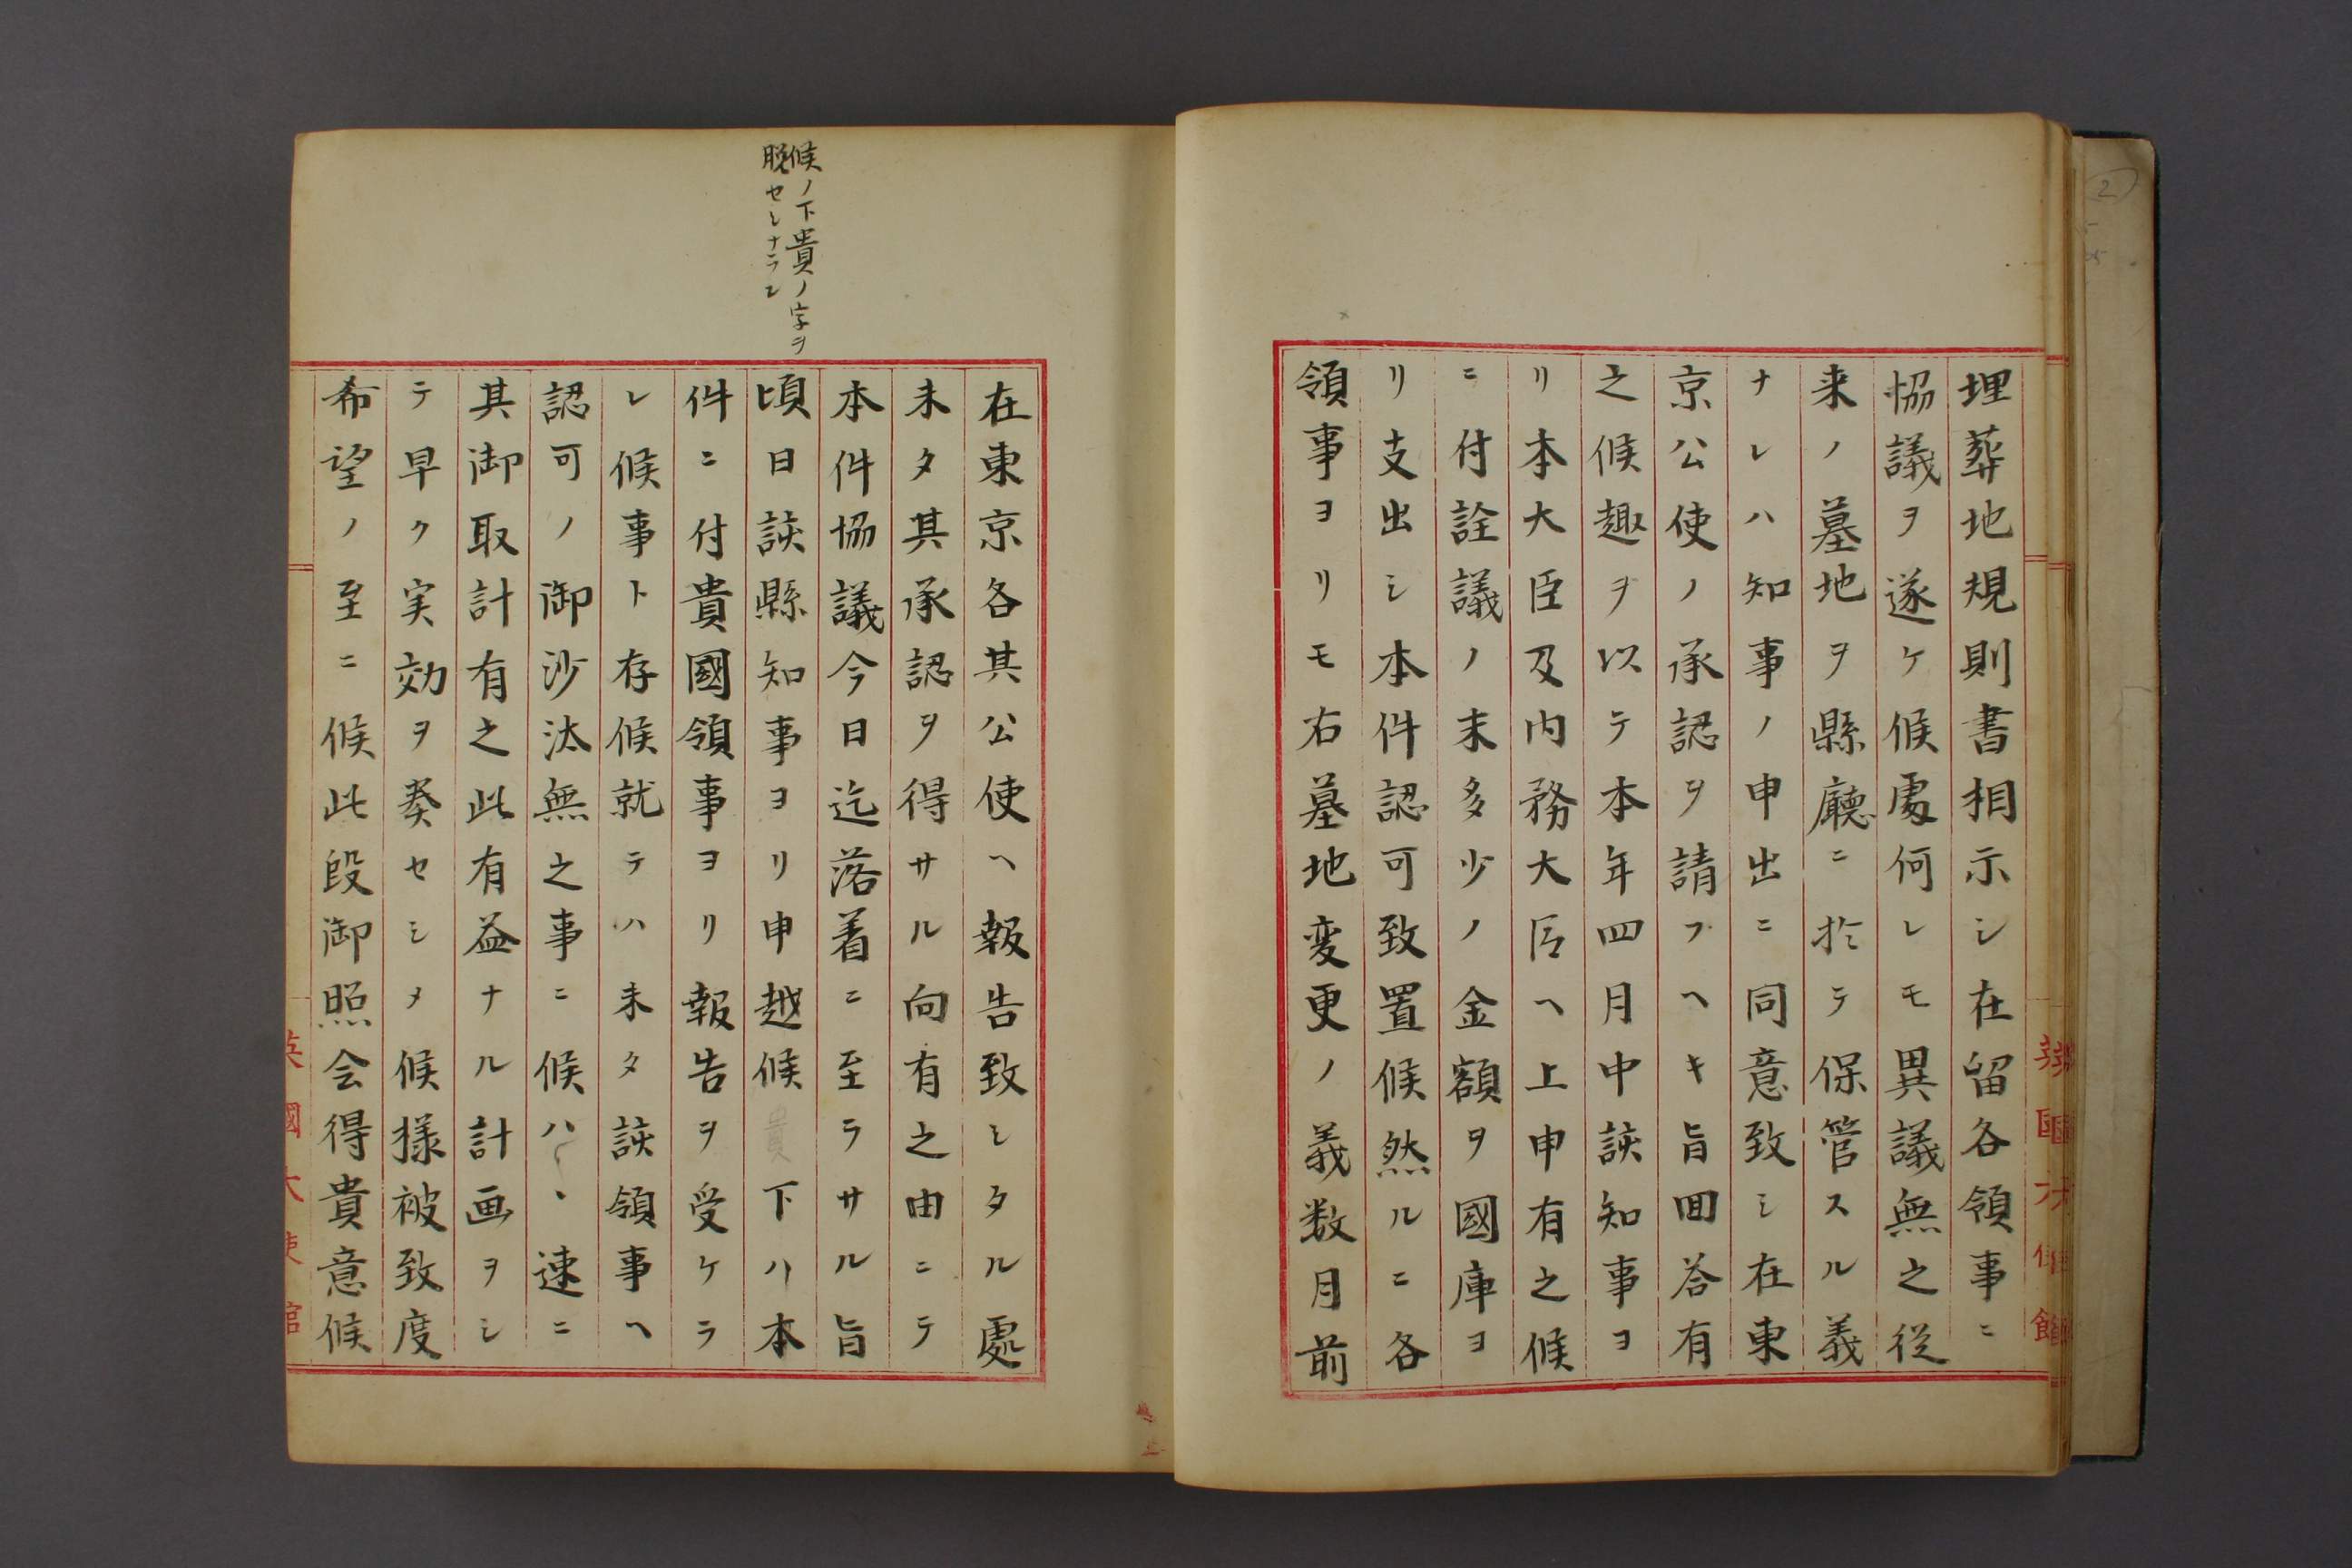 埋葬地規則書相示シ在留各領事ニ
協議ヲ遂ケ候處何レモ異議無之從
来ノ墓地ヲ縣廳ニ於テ保管スル義
ナレハ知事ノ申出ニ同意致シ在東
京公使ノ承認ヲ請フヘキ旨回答有
之候趣ヲ以テ本年四月中該知事ヨ
リ本大臣及内務大臣ヘ上申有之候
ニ付詮議ノ末多少ノ金額ヲ國庫ヨ
リ支出シ本件認可致置候然ルニ各
領事ヨリモ右墓地変更ノ義数月前
候ノ下貴ノ字ヲ
脱セシナラン
在東京各其公使ヘ報告致シタル處
未タ其承認ヲ得サル向有之由ニテ
本件協議今日迄落着ニ至ラサル旨
頃日該縣知事ヨリ申越候貴下ハ本
件ニ付貴國領事ヨリ報告ヲ受ケラ
レ候事ト存候就テハ未タ該領事ヘ
認可ノ御沙汰無之事ニ候ハヽ速ニ
其御取計有之此有益ナル計画ヲシ
テ早ク実効ヲ奏セシメ候様被致度
希望ノ至ニ候此段御照会得貴意候
英國大使館